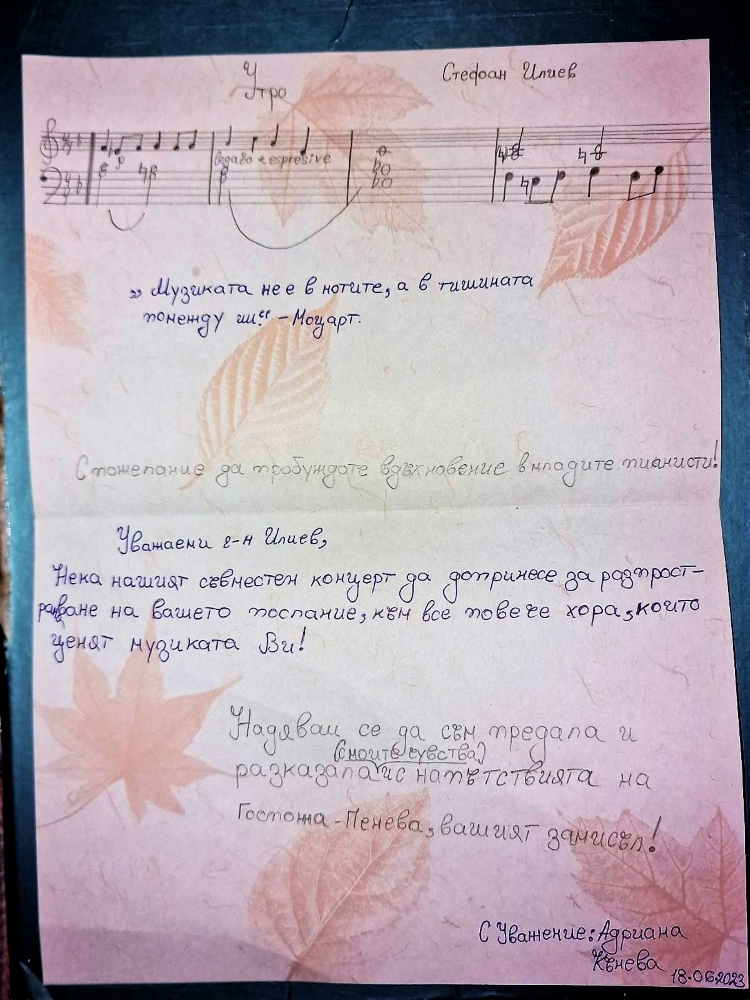 Утро
Стефан Илиев
p
legato e espresive
„Музиката не е в нотите, а в тишината
помежду им.“ – Моцарт.
С пожелание да пробуждате вдъхновение в младите пианисти!
Уважаеми г-н Илиев,
Нека нашият съвместен концерт да допринесе за разпрост-
раняване на вашето послание, към все повече хора, които
ценят музиката Ви!
Надявам се да съм предала и
(моите чувства)
разказала и с напътствията на
Госпожа-Пенева, вашият замисъл!
С Уважение: Адриана
Кънева
18.06.2023